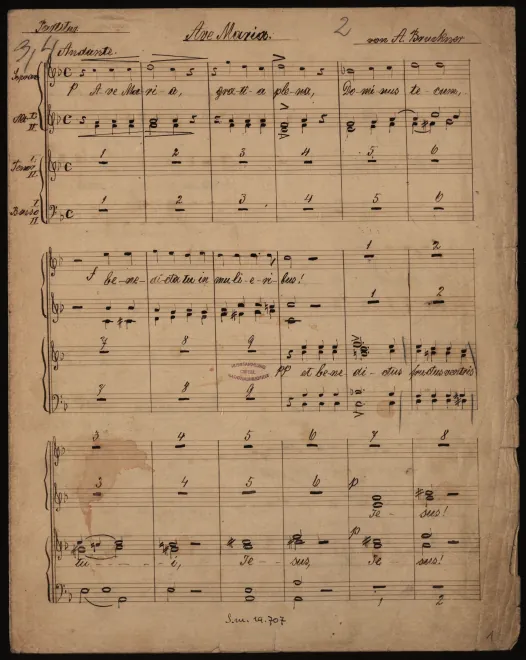 Partitur Ave Maria. 2 von A. Bruckner
3, 4
Andante.
Sopran
P A-ve Ma-ri-a, gra-ti-a ple-na, Do-mi-nus te-cum,
Alt I. II.
1 2 3 4 5 6
I. Tenor II.
1 2 3 4 5 6
I. Basso II.
1 2
f be-ne-dicta tu in mu-li-e-ri-bus!
1 2
7 8 9
pp et be-ne-di-ctus fructus ventris
7 8 9
3 4 5 6 7 8
3 4 5 6 p
Je-sus!
p
tu - - - - i, Je-sus, Je-sus!
1 2
S.m. 19.707
1